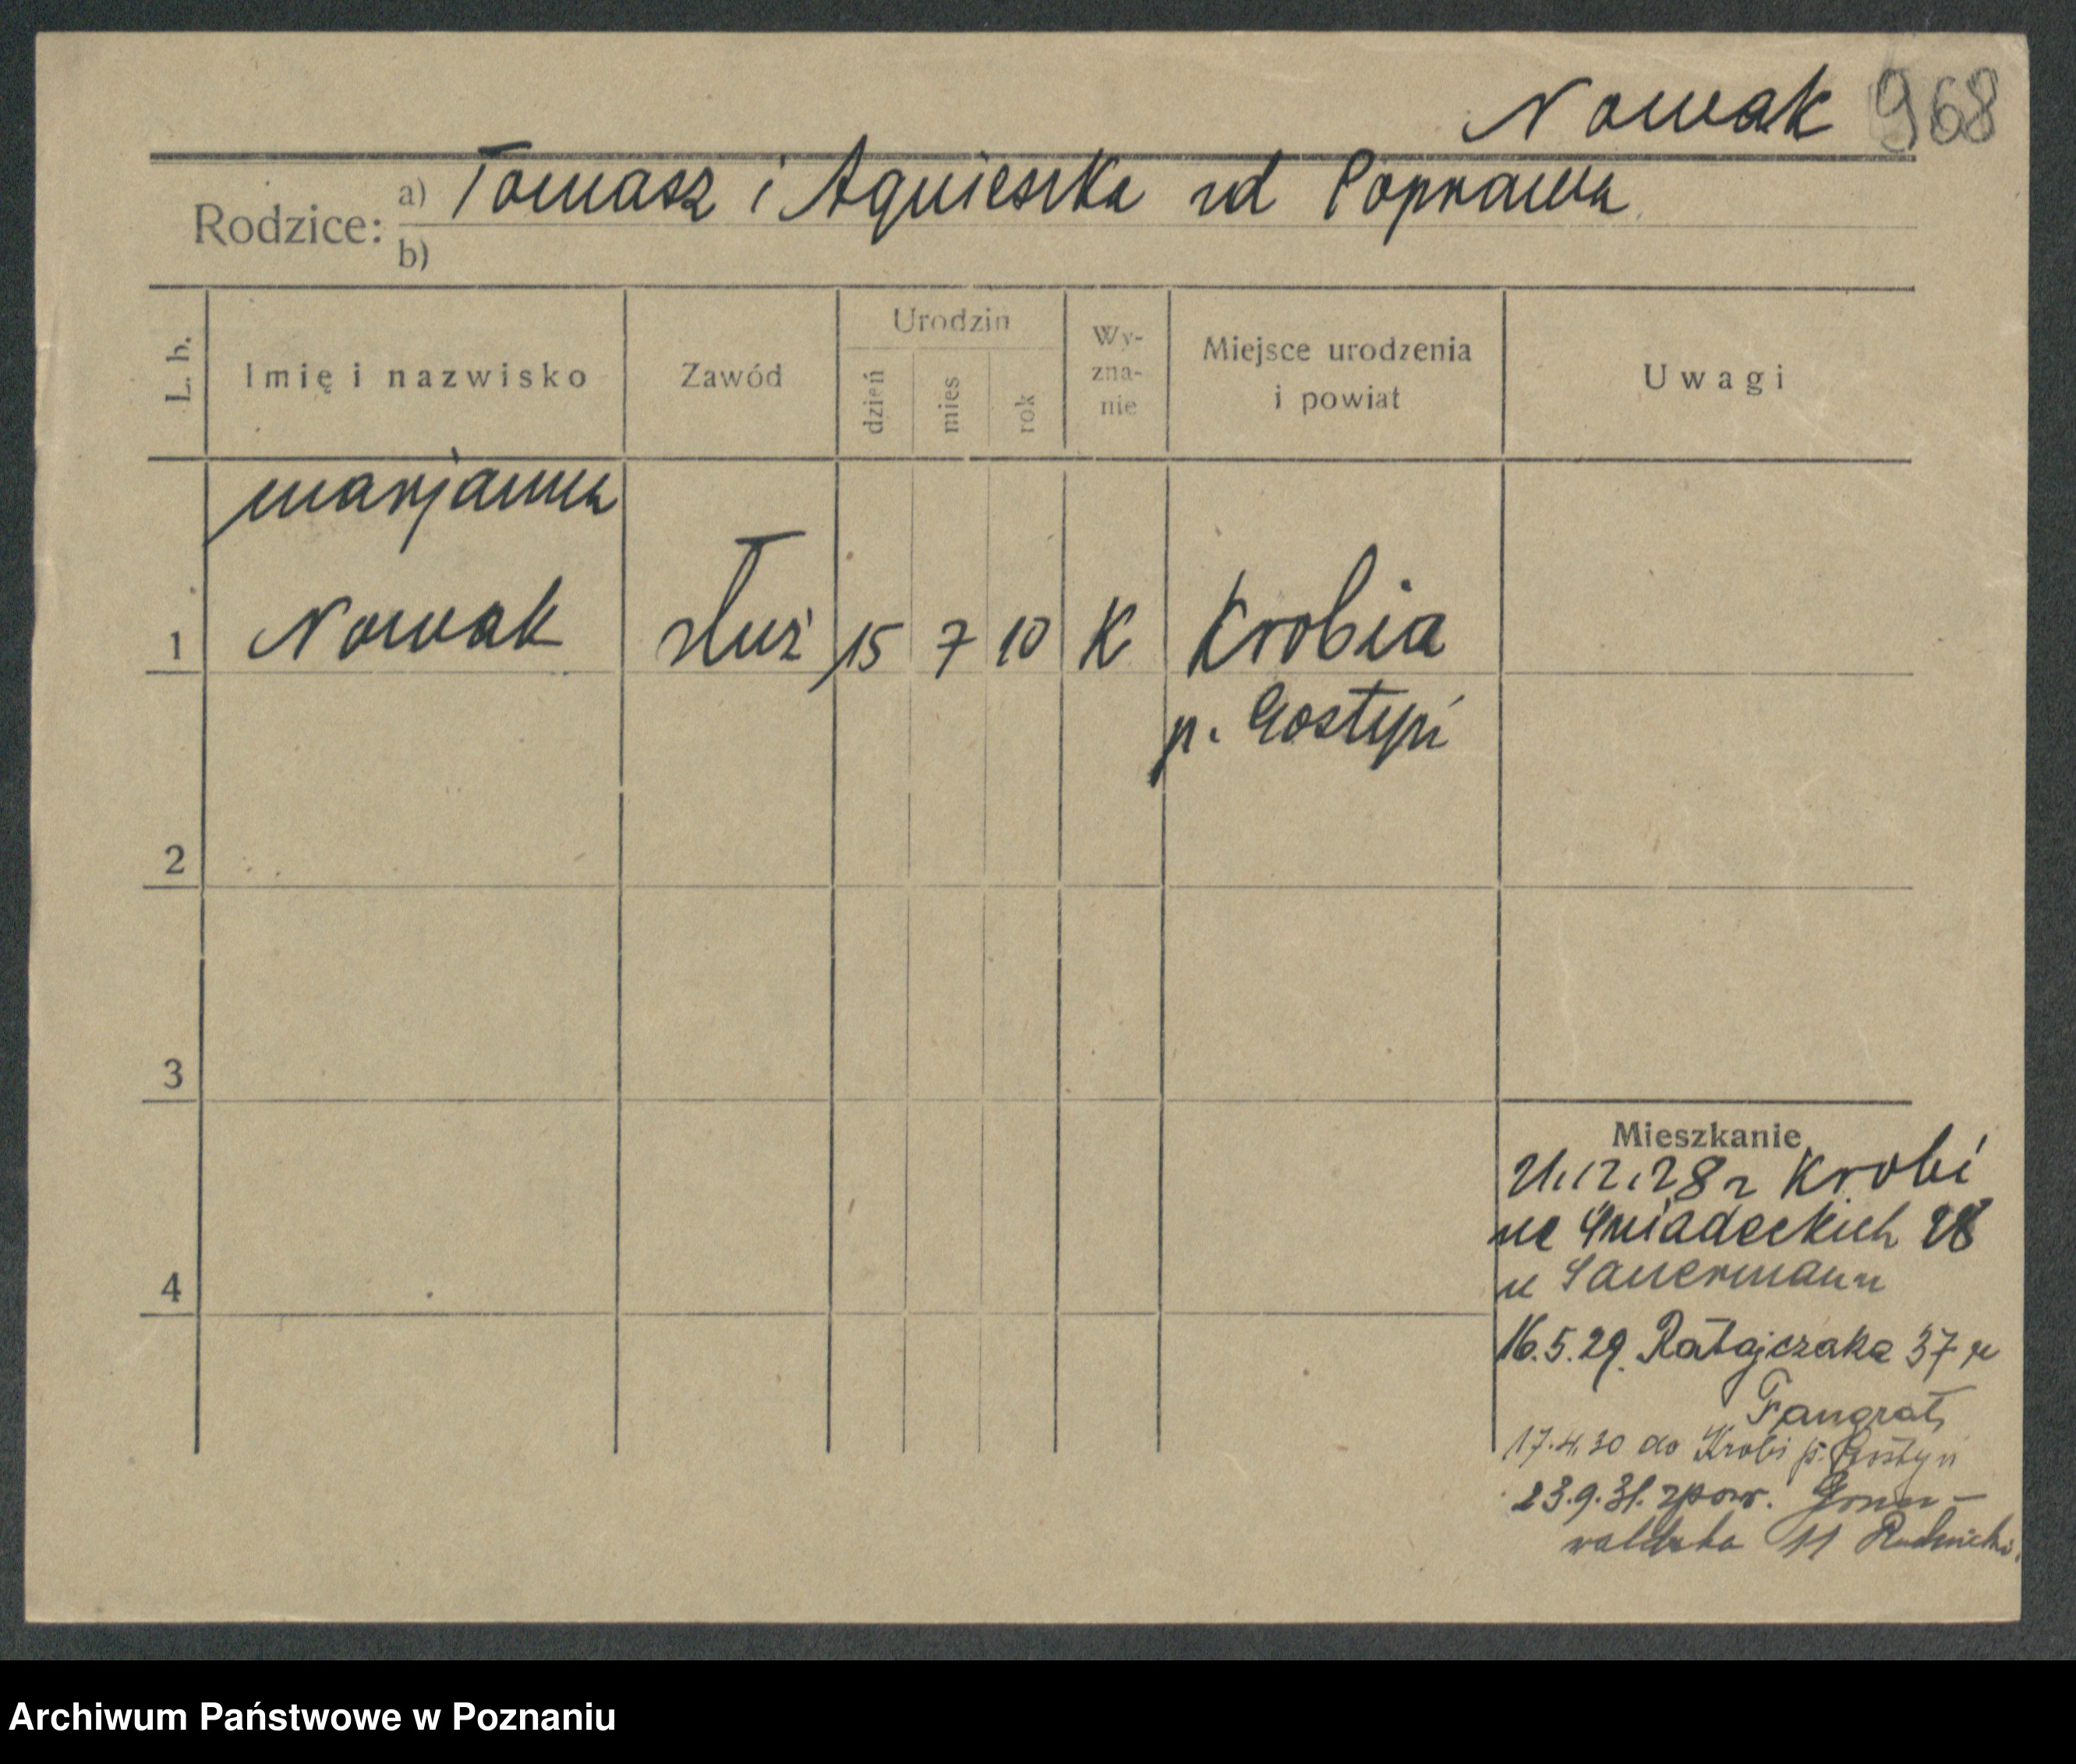 Nowak 968
Rodzice: a) Tomasz i Agnieszka zd Poprawa
b)
L. b. Imię i nazwisko Zawód Urodzin dzień mies rok Wy-zna-nie Miejsce urodzenia i powiat Uwagi
Marjanna
1 Nowak służ 15 7 10 K Krobia
p. Gostyń
2
3
4
Mieszkanie
21.12.28 z Krobi
ul Śniadeckich 28
u Sauermann
16.5.29. Ratajczaka 37 u
Fangrat
17.4.30 do Krobi p. Gostyń
23.9.31. zpow. Grun-
waldzka 11 Rudnicki.
Archiwum Państwowe w Poznaniu